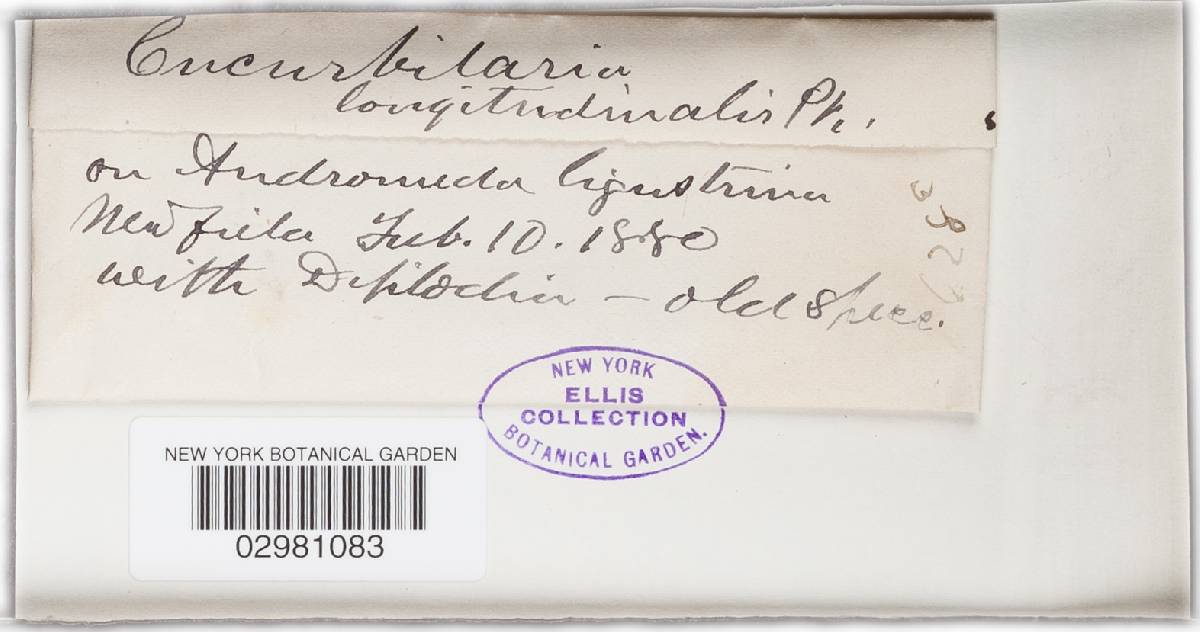 Cucurbitaria
longitudinalis Pk.
on Andromeda ligustrina
Newfield Feb. 10. 1880
with Diplodia – old spec.
NEW YORK
ELLIS
COLLECTION
BOTANICAL GARDEN.
NEW YORK BOTANICAL GARDEN
02981083